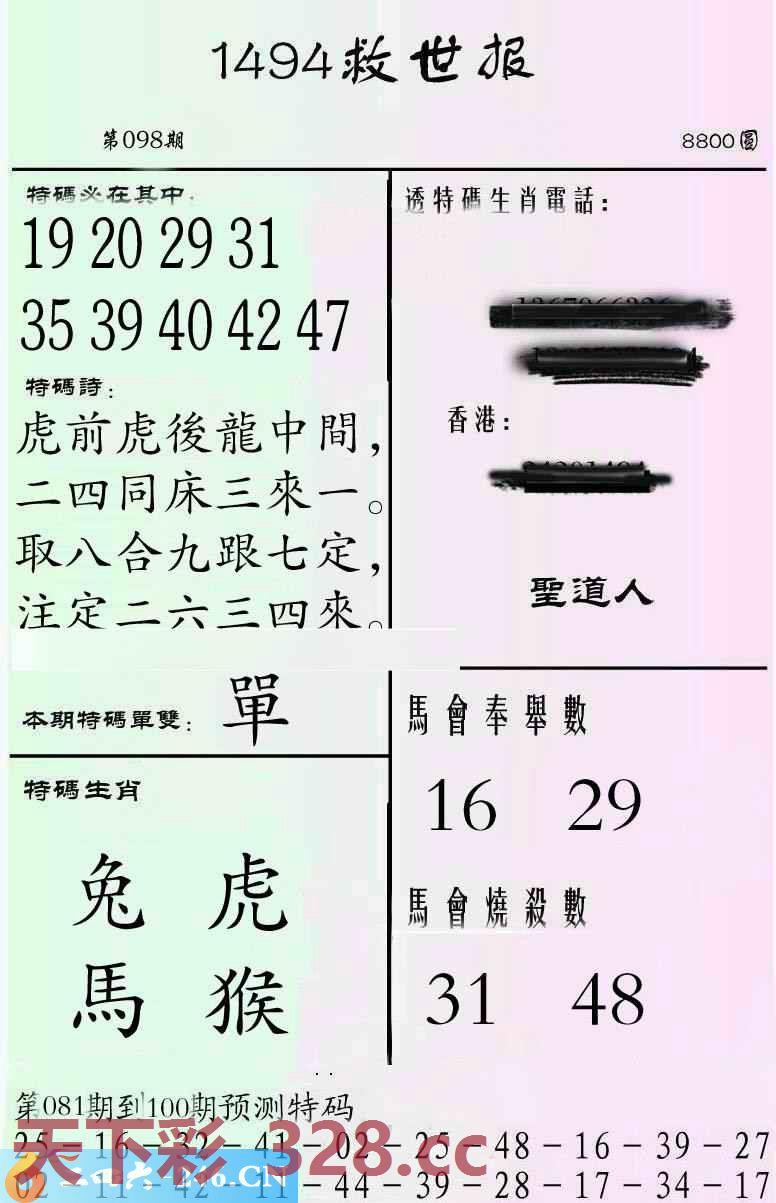 1494救世报
第098期
8800圓
特碼必在其中:
19 20 29 31
35 39 40 42 47
特碼詩:
虎前虎後龍中間,
二四同床三來一。
取八合九跟七定,
注定二六三四來。
本期特碼單雙: 單
特碼生肖
兔 虎
馬 猴
透特碼生肖電話:
香港:
聖道人
馬會奉舉數
16 29
馬會燒殺數
31 48
第081期到100期预测特码
25-16-32-41-02-25-48-16-39-27
02-11-42-11-44-39-28-17-34-17
天下彩 328.cc
二四六 246.CN